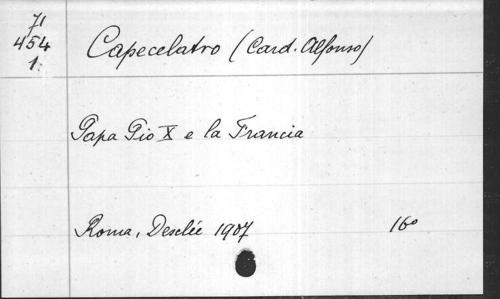 71
454
1.
Capecelatro (Card. Alfonso)
Papa Pio X e la Francia
Roma, Desclée 1907 16°